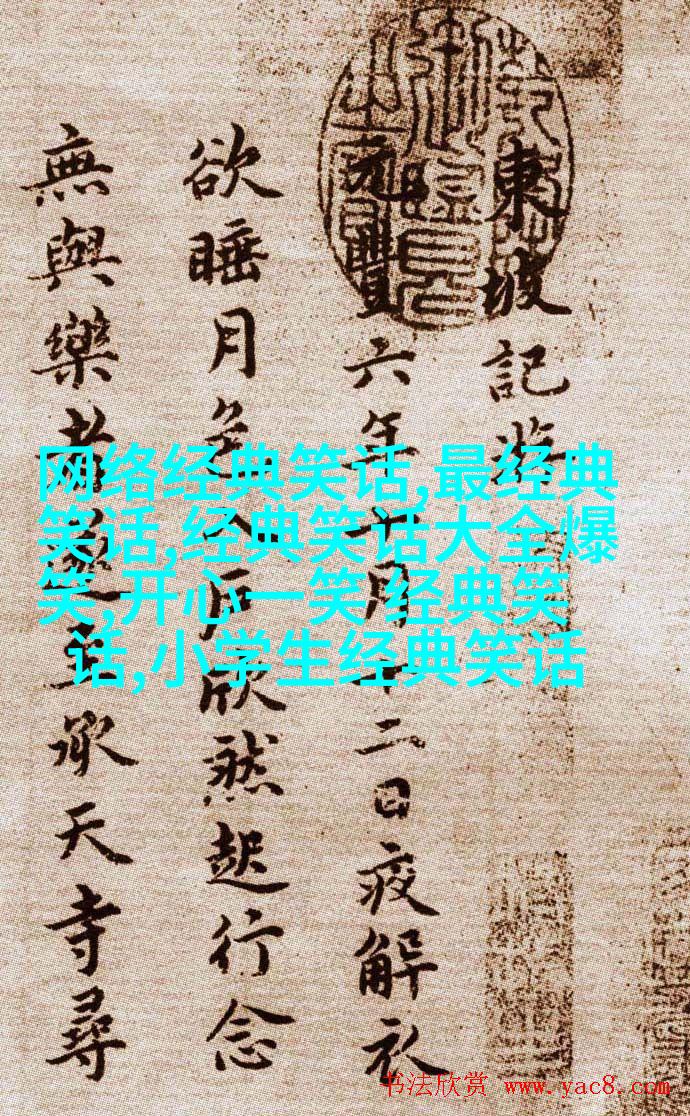 東坡記遊
元豐六年十月十二日夜解衣
欲睡月色入戶欣然起行念
無與樂者遂至承天寺尋
网络经典笑话,最经典
笑话,经典笑话大全爆
笑,开心一笑 经典笑
话,小学生经典笑话
书法欣赏 www.yac8.com